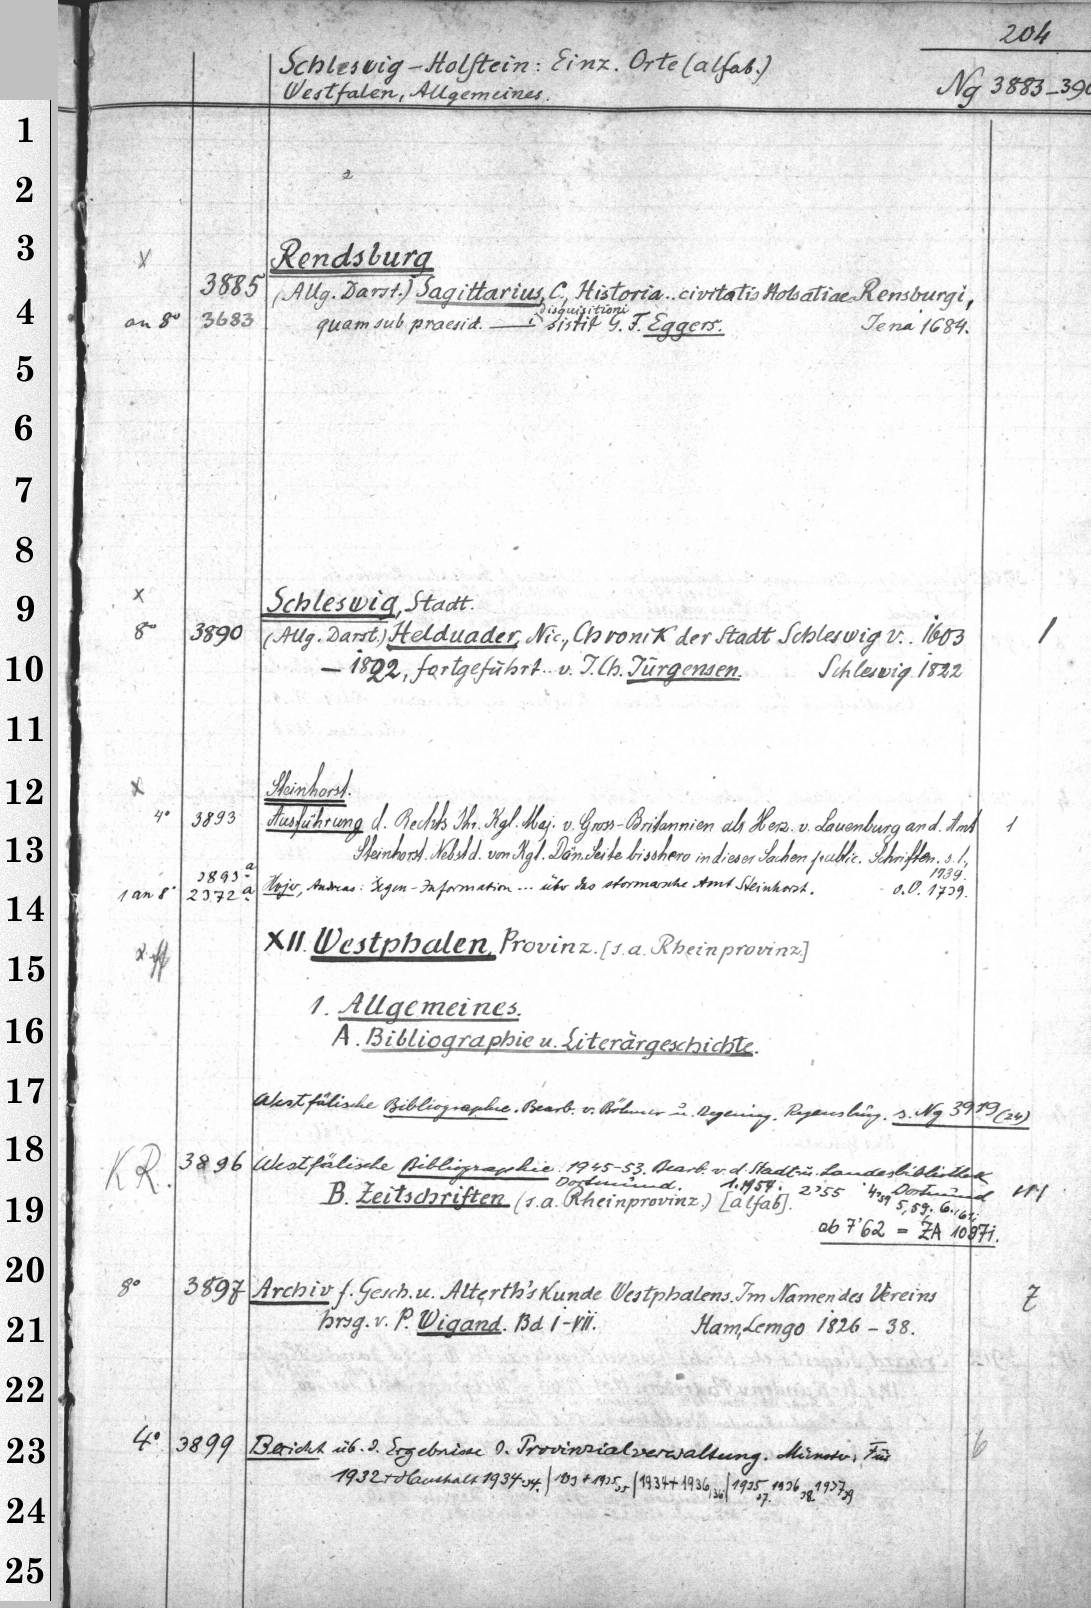 204
Schleswig-Holstein: Einz. Orte (alfab.)
Westfalen, Allgemeines.
Ng 3883-390
1
2
3 x Rendsburg
3885 (Allg. Darst.) Sagittarius, C., Historia .. civitatis Holsatiae Rensburgi,
4 an 8° 3683 quam sub praesid. — disquisitioni sistit G. F. Eggers. Jena 1684.
5
6
7
8
9 x Schleswig, Stadt.
8° 3890 (Allg. Darst.) Helduader, Nic., Chronik der Stadt Schleswig v. . 1603 1
10 — 1822, fortgeführt .. v. J. Ch. Jürgensen. Schleswig 1822
11
12 x Steinhorst.
4° 3893 Ausführung d. Rechts Ihr. Kgl. Maj. v. Gross-Britannien als Herz. v. Lauenburg an d. Amt 1
13 Steinhorst. Nebst d. von Kgl. Dän. Seite bisshero in dieser Sachen public. Schriften. s. l.,
1739.
3893 a
14 1 an 8° 2372 a Hojer, Andreas: Gegen-Information ... über das stormarsche Amt Steinhorst. o.O. 1739.
15 x ff XII. Westphalen, Provinz. [s. a. Rheinprovinz]
16 1. Allgemeines.
A. Bibliographie u. Literärgeschichte.
17 Westfälische Bibliographie. Bearb. v. Böhmer u. Degering. Regensburg. s. Ng 3919 (24)
18 KR. 3896 Westfälische Bibliographie. 1945-53. Bearb. v. d. Stadt- u. Landesbibliothek
Dortmund. 1. 1954. 2'55 Dortmund
19 B. Zeitschriften (s. a. Rheinprovinz.) [alfab].
ab 7'62 = ZA 1087i.
20 8° 3897 Archiv f. Gesch. u. Alterth's Kunde Westphalens. Im Namen des Vereins 7
21 hrsg. v. P. Wigand. Bd I-VII. Ham, Lemgo 1826-38.
22
23 4° 3899 Bericht üb. d. Ergebnisse d. Provinzialverwaltung. Münster. Für 6
1932 + Haushalt 1934
24
25